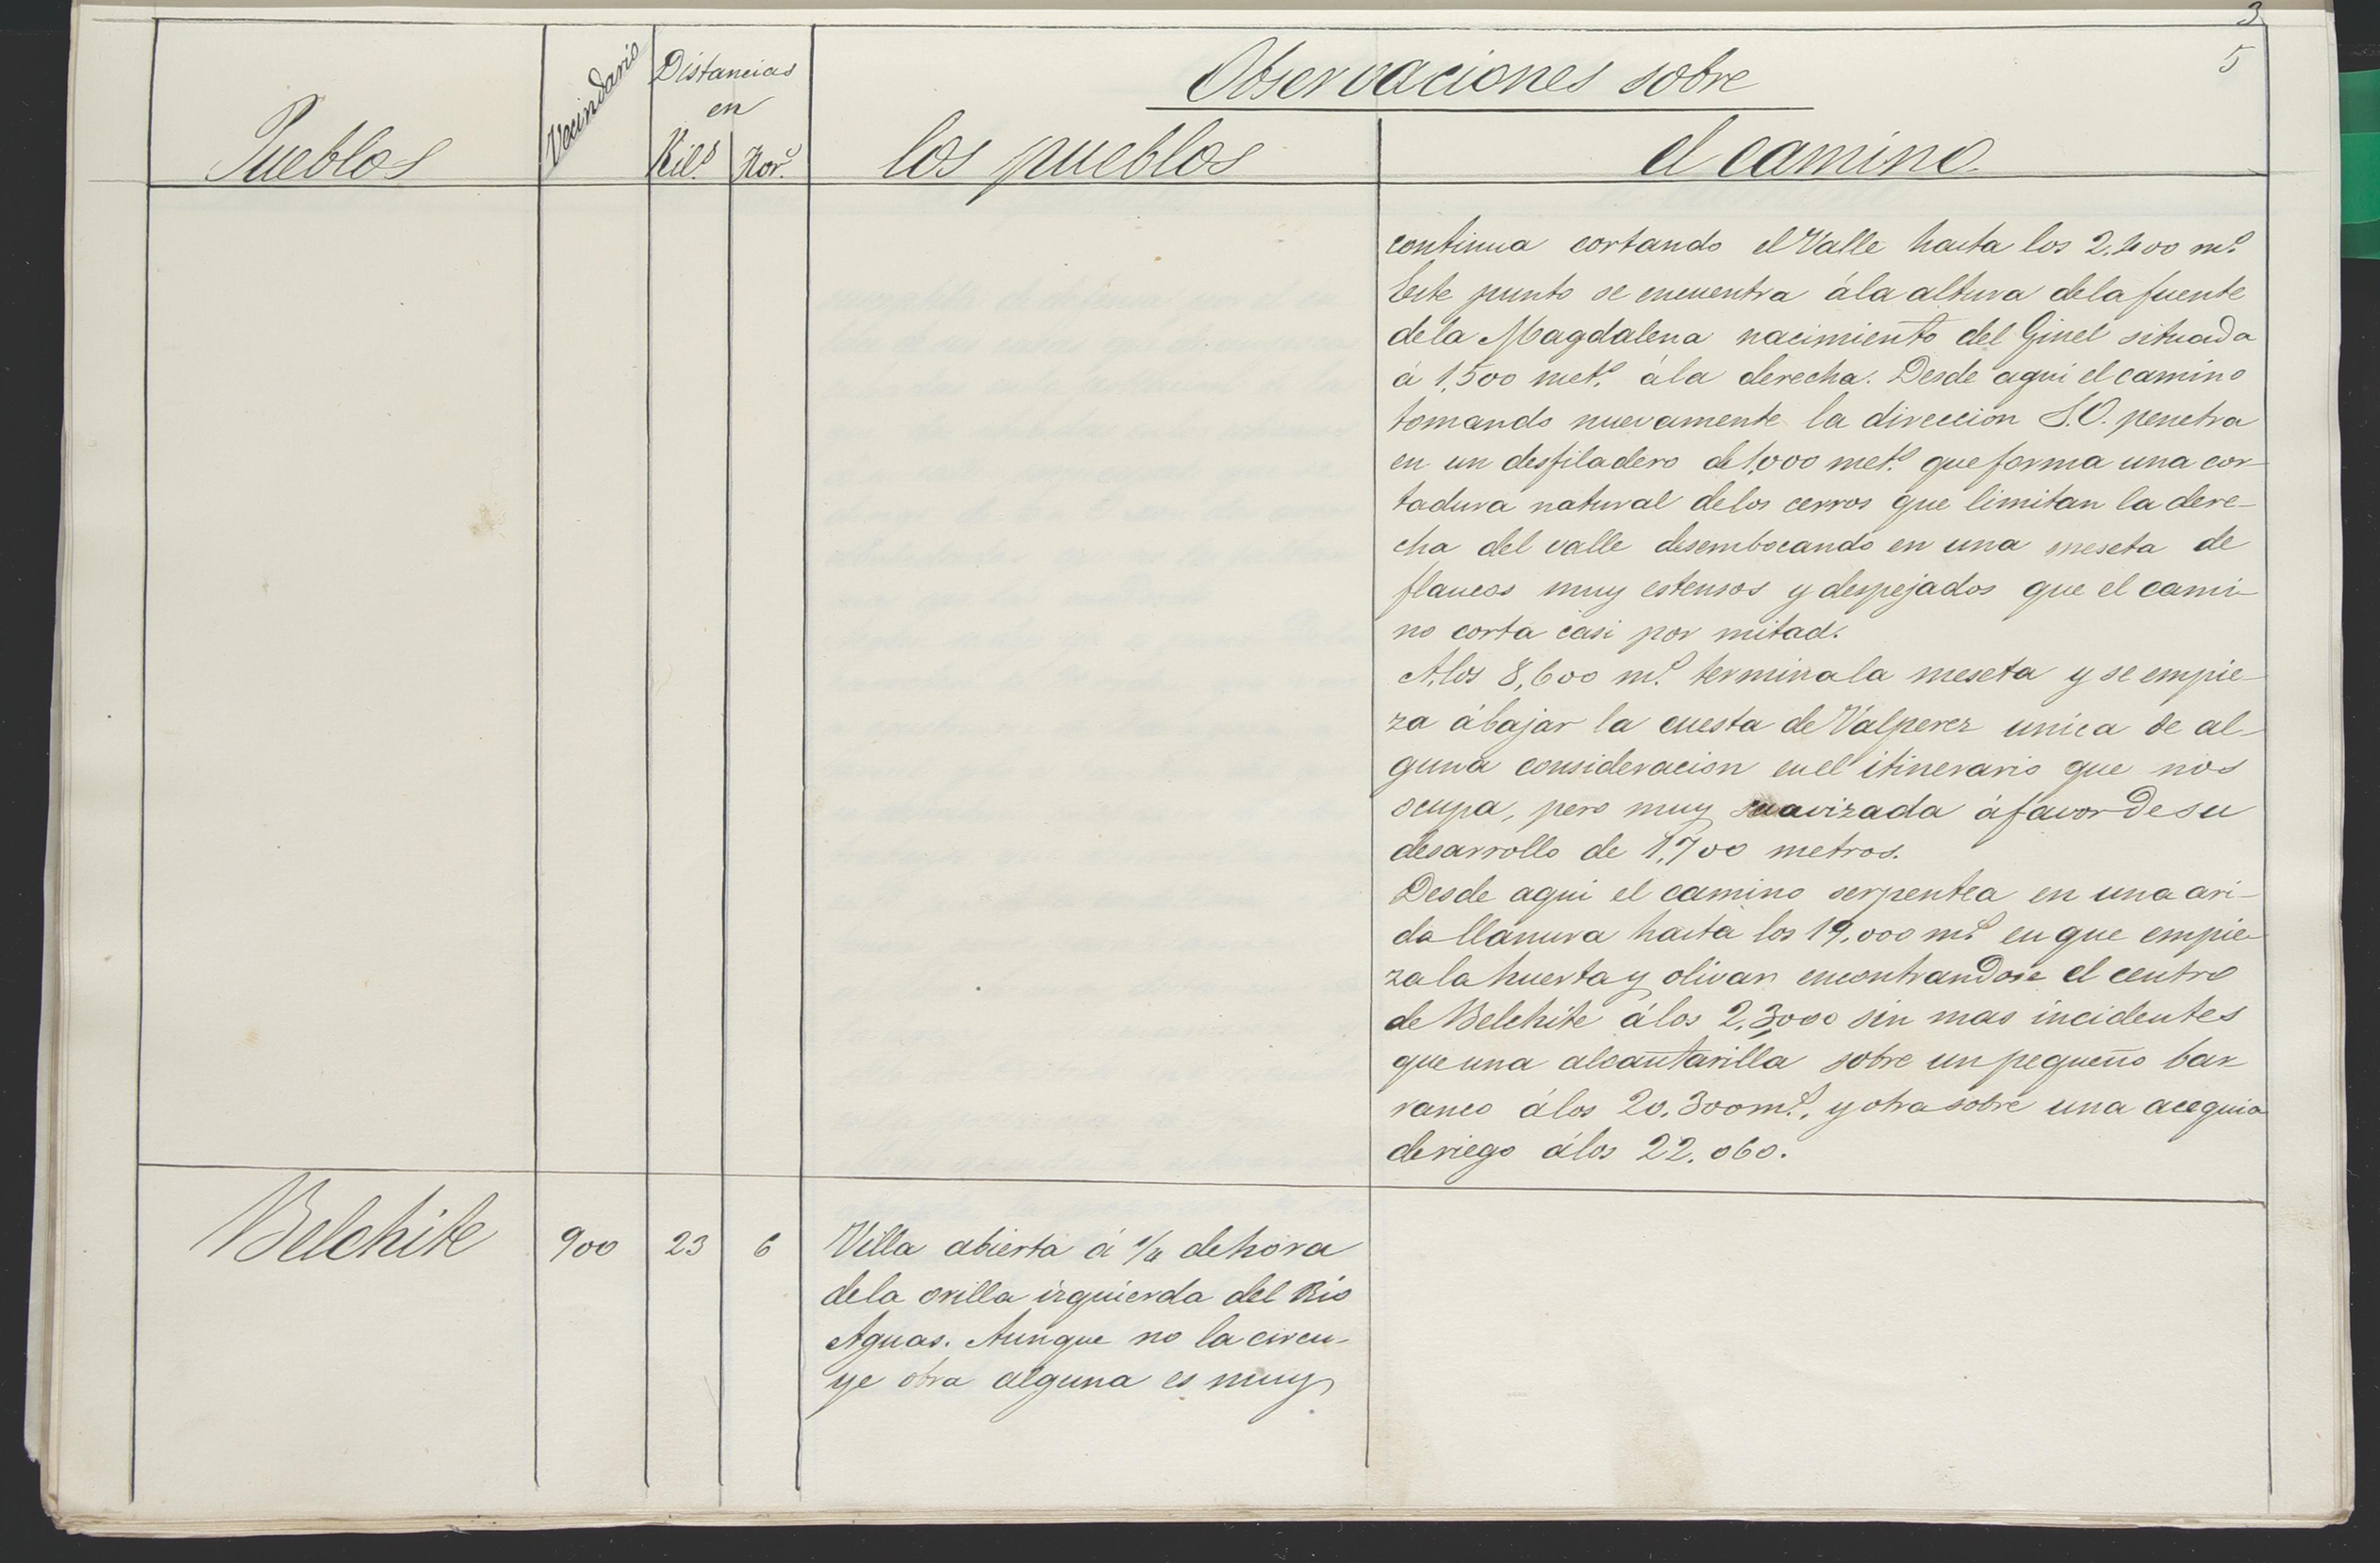 3
5
Observaciones sobre
Pueblos
Vecindario
Distancias
en
Kil.s
Hor.s
los pueblos
el camino.
continua cortando el Valle hasta los 2.400 m.s
Este punto se encuentra á la altura de la fuente
de la Magdalena nacimiento del Ginel situada
á 1,500 met.s á la derecha. Desde aqui el camino
tomando nuevamente la direccion S.O. penetra
en un desfiladero de 1,000 met.s que forma una cor-
tadura natural de los cerros que limitan la dere-
cha del valle desembocando en una meseta de
flancos muy estensos y despejados que el cami-
no corta casi por mitad.
A los 8,600 m.s termina la meseta y se empie-
za á bajar la cuesta de Valperez unica de al-
guna consideracion en el itinerario que nos
ocupa, pero muy suavizada á favor de su
desarrollo de 1,700 metros.
Desde aqui el camino serpentea en una ari-
da llanura hasta los 19.000 m.s en que empie-
za la huerta y olivar encontrandose el centro
de Belchite á los 2,3,000 sin mas incidentes
que una alcantarilla sobre un pequeño bar-
ranco á los 20.300 m.s, y otra sobre una acequia
de riego á los 22.060.
Belchite
900
23
6
Villa abierta á 1/4 de hora
de la orilla izquierda del Rio
Aguas. Aunque no la circu-
ye obra alguna es muy